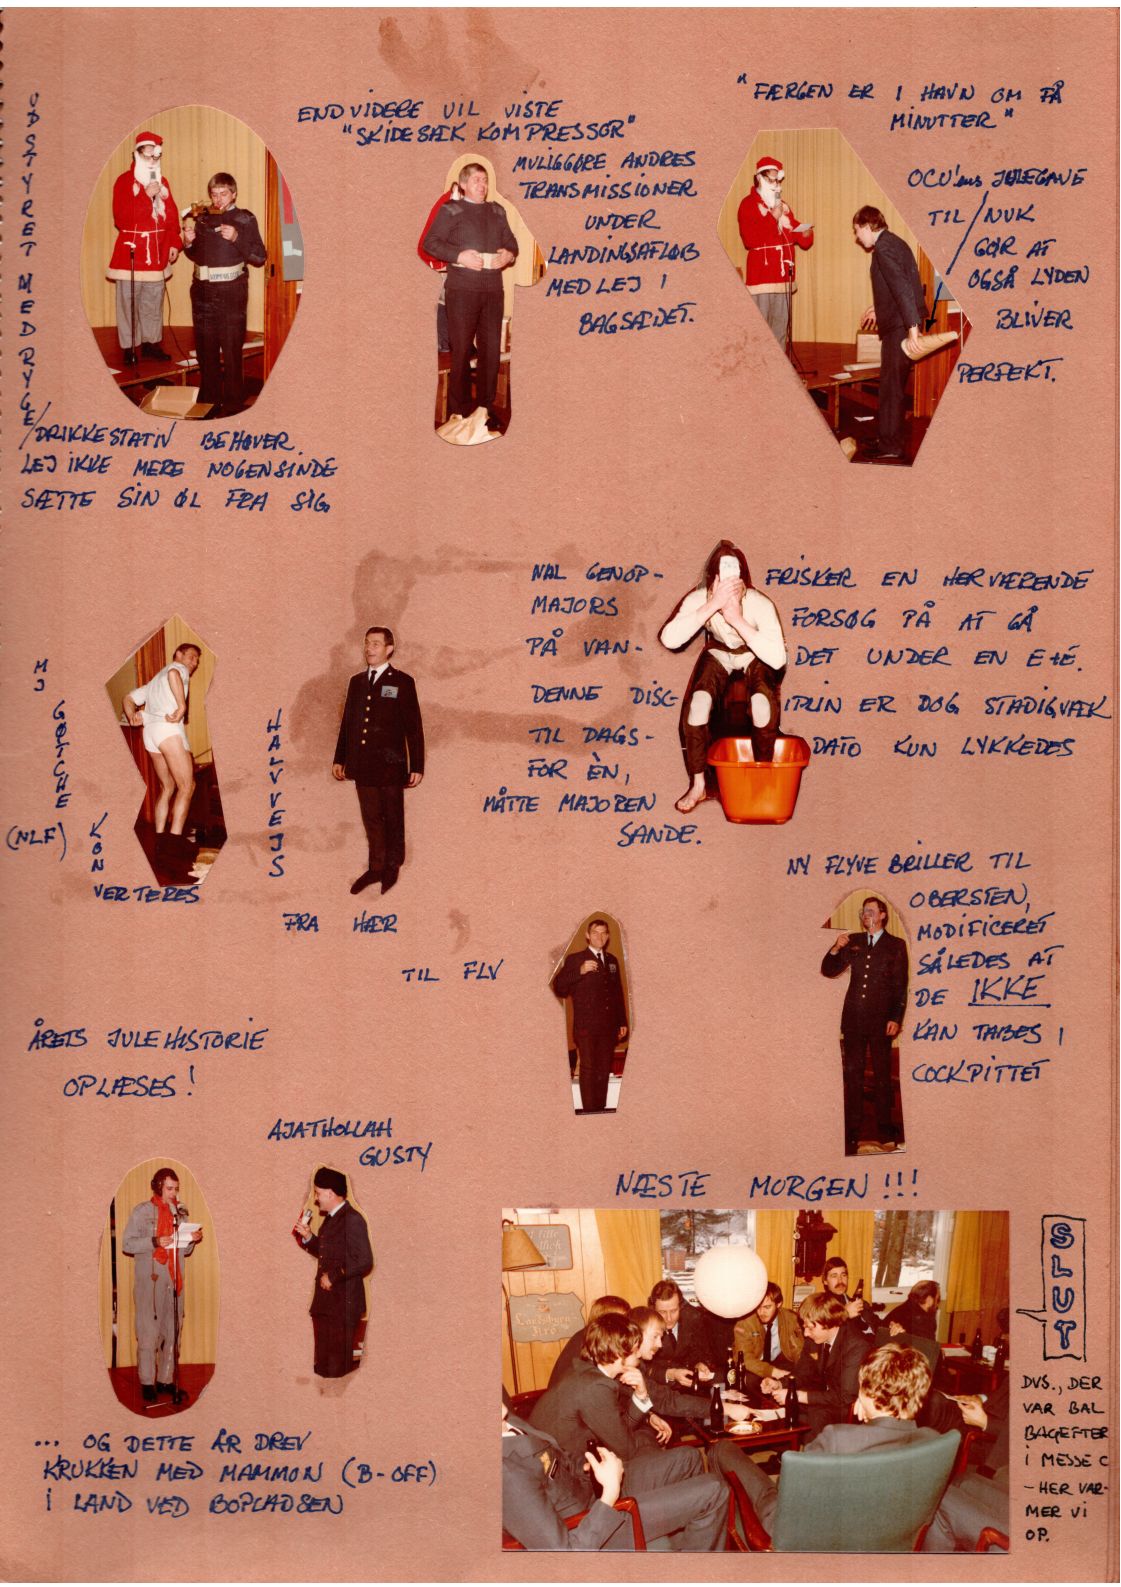 UDSTYRET MED RYGE/
DRIKKESTATIV BEHØVER
LEJ IKKE MERE NOGENSINDE
SÆTTE SIN ØL FRA SIG.
ENDVIDERE VIL VISTE
"SKIDESÆK KOMPRESSOR"
MULIGGØRE ANDRES
TRANSMISSIONER
UNDER
LANDINGSAFLØB
MED LEJ I
BAGSÆDET.
"FÆRGEN ER I HAVN OM FÅ
MINUTTER"
OCU'ens JULEGAVE
TIL NUK
GØR AT
OGSÅ LYDEN
BLIVER
PERFEKT.
NAL GENOP- FRISKER EN HERVÆRENDE
MAJORS FORSØG PÅ AT GÅ
PÅ VAN- DET UNDER EN E+E.
DENNE DISC- IPLIN ER DOG STADIGVÆK
TIL DAGS- DATO KUN LYKKEDES
FOR ÈN,
MÅTTE MAJOREN
SANDE.
MJ GØTCHE
(NLF)
KON
VERTERES
HALVVEJS
FRA HÆR
TIL FLV
NY FLYVEBRILLER TIL
OBERSTEN,
MODIFICERET
SÅLEDES AT
DE IKKE
KAN TABES I
COCKPITTET
ÅRETS JULEHISTORIE
OPLÆSES!
AJATHOLLAH
GUSTY
... OG DETTE ÅR DREV
KRUKKEN MED MAMMON (B-OFF)
I LAND VED BOPLADSEN
NÆSTE MORGEN!!!
SLUT
DVS., DER
VAR BAL
BAGEFTER
I MESSE C
- HER VAR-
MER VI
OP.